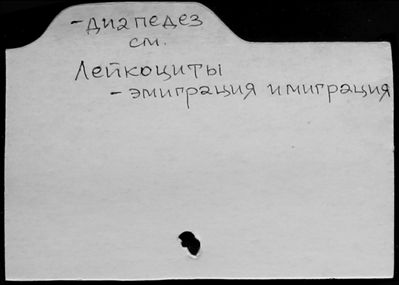 -диапедез
см.
Лейкоциты
- эмиграция имиграция